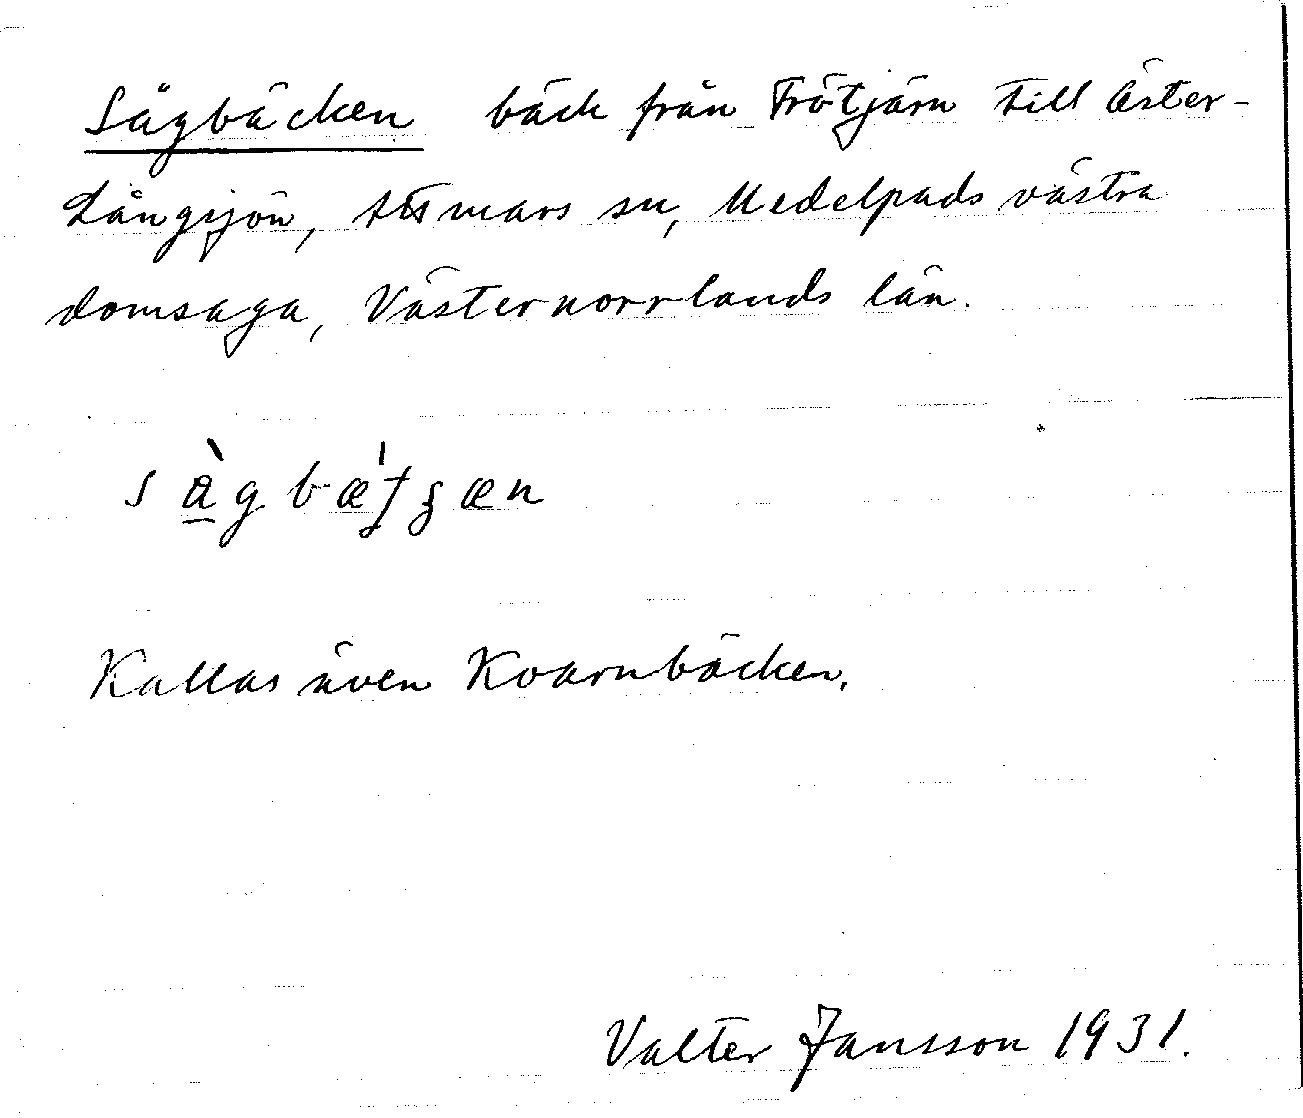 Sågbäcken bäck från Frötjärn till Öster-
Långsjön, Attmars sn, Medelpads västra
domsaga, Västernorrlands län.
sàgbæʹƭʂæn
Kallas även Kvarnbäcken.
Valter Jansson 1931.